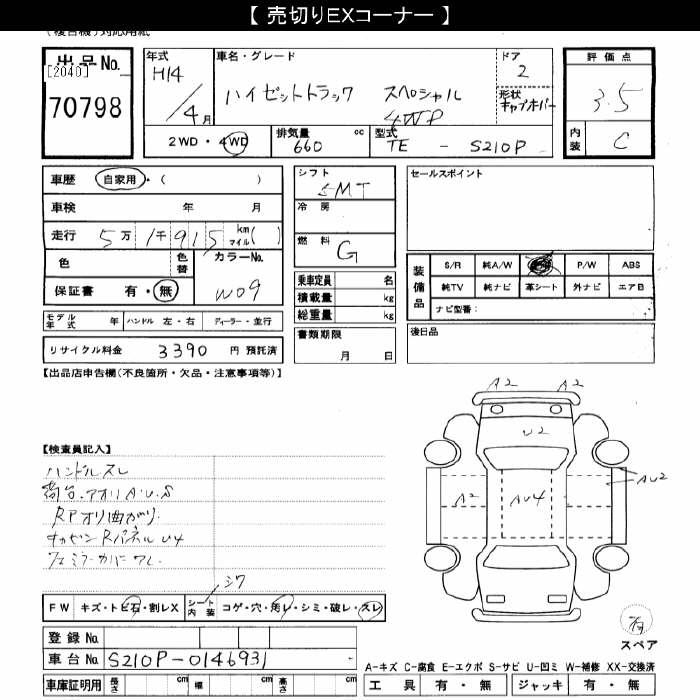 【 売切りEXコーナー 】
出品No.
[2040]
70798
年式
H14
4月
車名・グレード
ハイゼットトラック スペシャル
4WD
ドア
2
形状
キャブオーバー
2WD・4WD
排気量 660 cc
型式 TE - S210P
評価点
3.5
内装 C
車歴 自家用・( )
車検 年 月
走行 5万1千915 km マイル( )
色
色替
カラーNo.
W09
保証書 有・無
モデル年式 年 ハンドル 左・右 ディーラー・並行
リサイクル料金 3390 円 預託済
シフト
5MT
冷房
燃料
G
乗車定員 名
積載量 kg
総重量 kg
書類期限
月 日
セールスポイント
装備品
S/R 純A/W P/W ABS
純TV 純ナビ 革シート 外ナビ エアB
ナビ型番:
後日品
【出品店申告欄(不良箇所・欠品・注意事項等)】
【検査員記入】
ハンドルスレ
荷台.アオリA.U.S
Rアオリ曲がり.
キャビンRパネルU4
フェミラーカバーワレ.
シワ
FW キズ・トビ石・割レX
シート内装 コゲ・穴・汚レ・シミ・破レ・スレ
登録No.
車台No. S210P-0146931
車庫証明用 長さ cm 幅 cm 高さ cm
A2 A2
U2
A2
AU4
AU2
スペア
A-キズ C-腐食 E-エクボ S-サビ U-凹ミ W-補修 XX-交換済
工具 有・無 ジャッキ 有・無